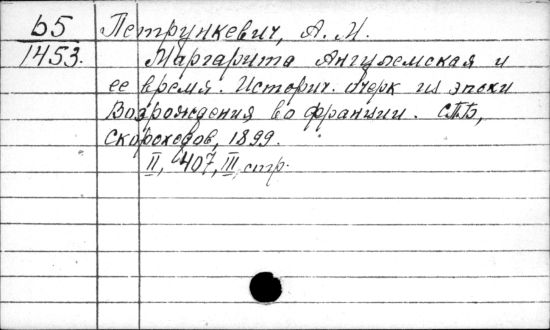 Б5 Петрункевич, А. М.
1453. Маргарита Ангулемская и
ее время. Историч. очерк из эпохи
Возрождения во Франции. СПБ,
Скороходов, 1899.
II, 407, III, стр.